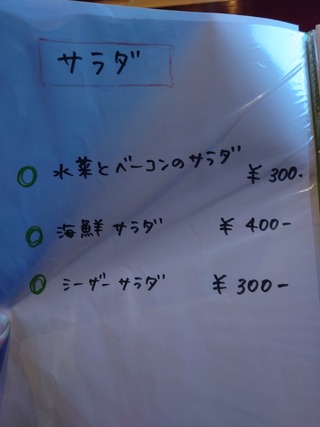 サラダ
水菜とベーコンのサラダ ¥300-
海鮮サラダ ¥400-
シーザーサラダ ¥300-